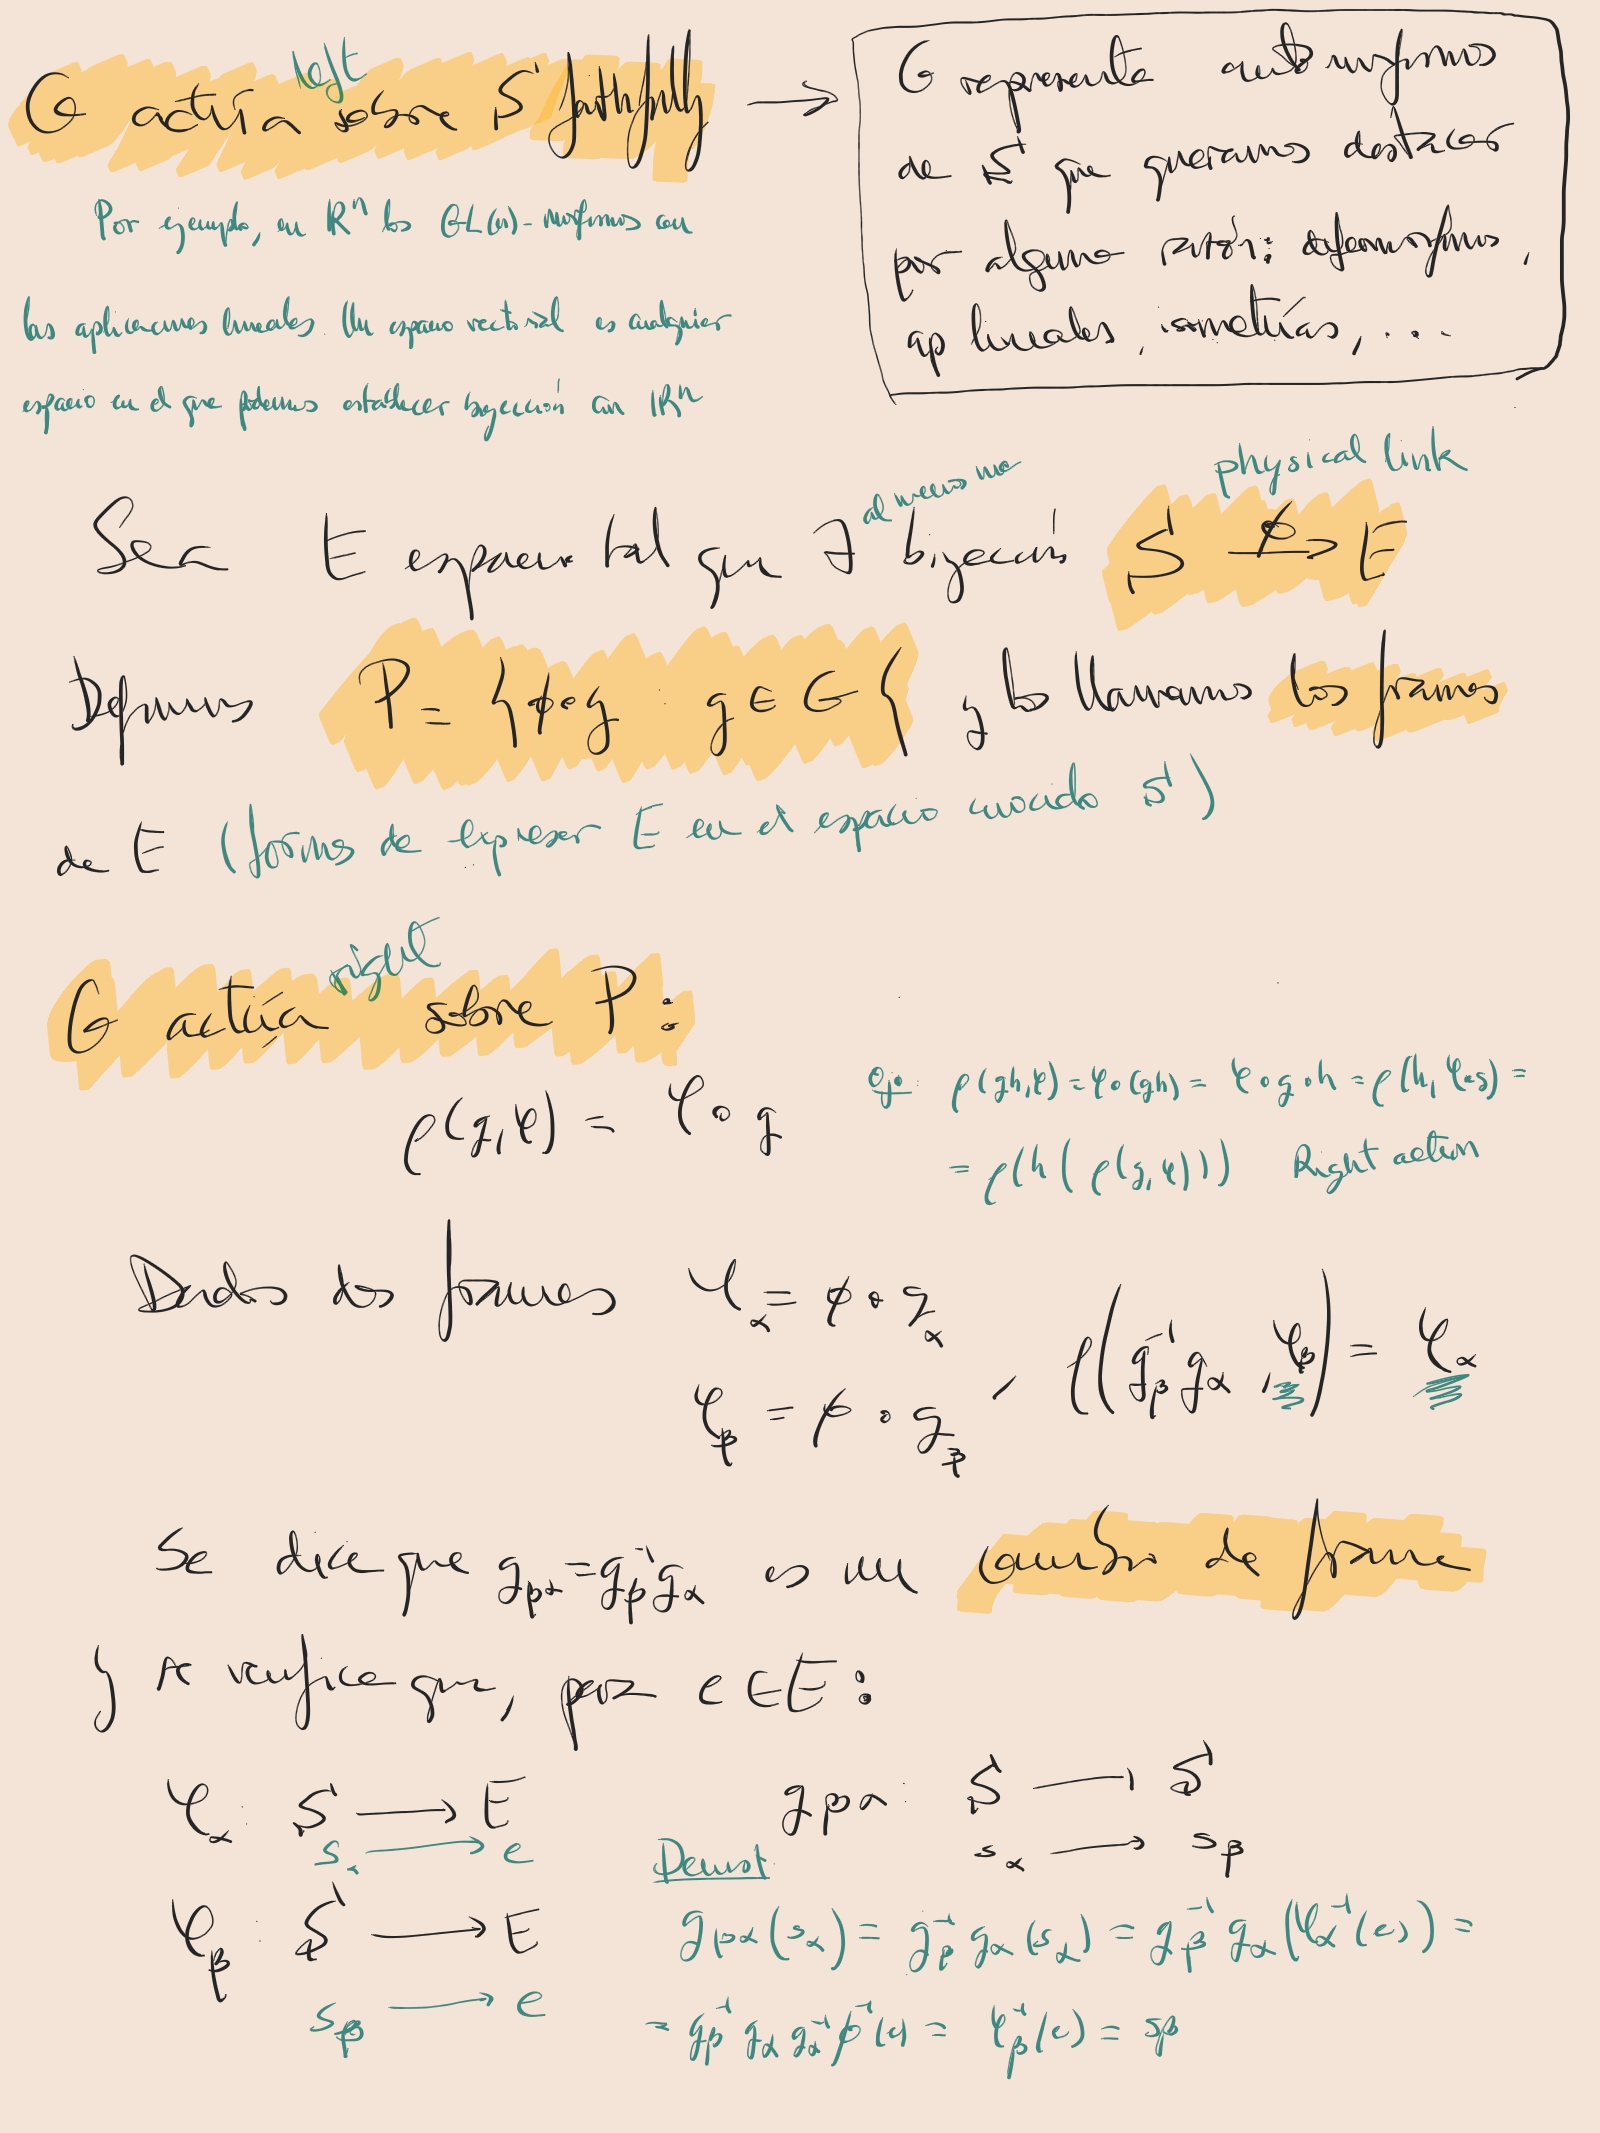 left
G actúa sobre S faithfully →
G representa automorfismos
de S que queramos destacar
por alguna razón: difeomorfismos,
ap lineales, isometrías, ...
Por ejemplo, en ℝⁿ los GL(n)-morfismos son
las aplicaciones lineales. Un espacio vectorial es cualquier
espacio en el que podemos establecer biyección con ℝⁿ
al menos una
physical link
Sea E espacio tal que ∃ biyección S —ϕ→ E
Definimos P = { ϕ∘g : g ∈ G } y los llamamos los frames
de E (formas de expresar E en el espacio conocido S)
right
G actúa sobre P:
ρ(g,φ) = φ∘g
Ojo: ρ(gh,φ) = φ∘(gh) = φ∘g∘h = ρ(h, φ∘g) =
= ρ(h ( ρ(g,φ))) Right action
Dados dos frames φ_α = ϕ∘g_α
φ_β = ϕ∘g_β , ρ(g_β⁻¹ g_α , φ_β) = φ_α
Se dice que g_βα = g_β⁻¹ g_α es un cambio de frame
y se verifica que, para e ∈ E:
φ_α : S → E
s_α → e
g_βα : S → S
s_α → s_β
φ_β : S → E
s_β → e
Demost
g_βα(s_α) = g_β⁻¹ g_α(s_α) = g_β⁻¹ g_α(φ_α⁻¹(e)) =
= g_β⁻¹ g_α g_α⁻¹ ϕ⁻¹(e) = φ_β⁻¹(e) = s_β